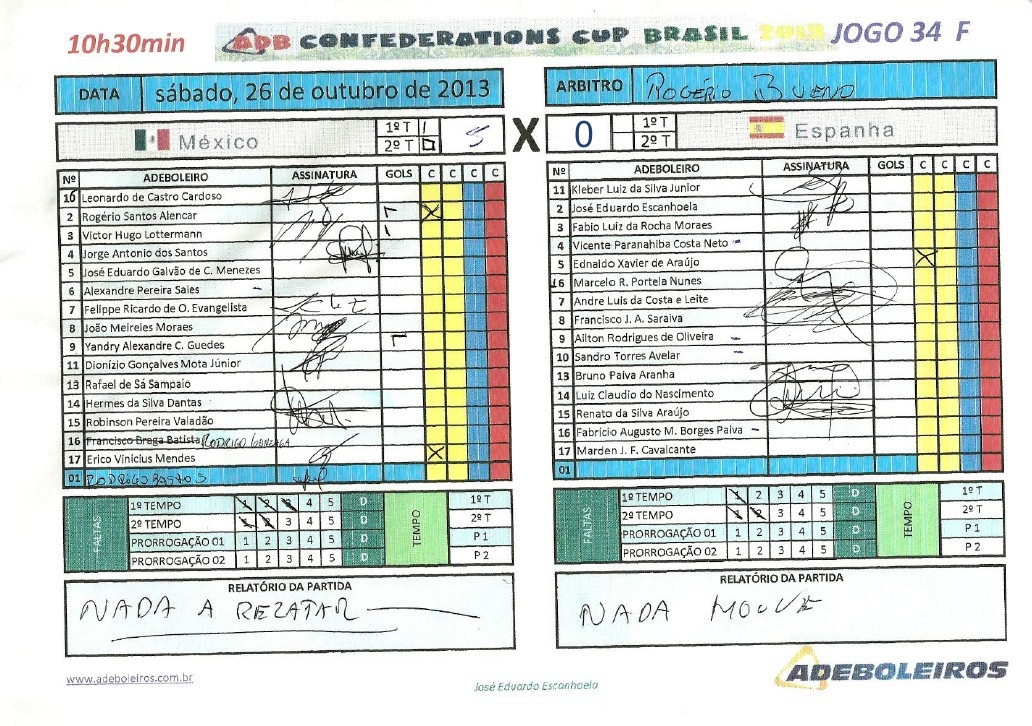 10h30min ADB CONFEDERATIONS CUP BRASIL 2013 JOGO 34 F
DATA sábado, 26 de outubro de 2013
México 1º T 2º T 5
X
ARBITRO ROGÉRIO BUENO
0 1º T 2º T Espanha
Nº ADEBOLEIRO ASSINATURA GOLS C C C C
10 Leonardo de Castro Cardoso
2 Rogério Santos Alencar X
3 Victor Hugo Lottermann
4 Jorge Antonio dos Santos
5 José Eduardo Galvão de C. Menezes
6 Alexandre Pereira Sales -
7 Felippe Ricardo de O. Evangelista
8 João Meireles Moraes
9 Yandry Alexandre C. Guedes
11 Dionízio Gonçalves Mota Júnior
13 Rafael de Sá Sampaio
14 Hermes da Silva Dantas
15 Robinson Pereira Valadão
16 Francisco Brega Batista RODRIGO GONZAGA
17 Erico Vinicius Mendes X
01 RODRIGO BASTOS
FALTAS
1º TEMPO 1 2 3 4 5 D
2º TEMPO 1 2 3 4 5 D
PRORROGAÇÃO 01 1 2 3 4 5 D
PRORROGAÇÃO 02 1 2 3 4 5 D
TEMPO
1º T
2º T
P 1
P 2
RELATÓRIO DA PARTIDA
NADA A REZATAR
Nº ADEBOLEIRO ASSINATURA GOLS C C C C
11 Kleber Luiz da Silva Junior
2 José Eduardo Escanhoela
3 Fabio Luiz da Rocha Moraes
4 Vicente Paranahiba Costa Neto -
5 Ednaldo Xavier de Araújo X
16 Marcelo R. Portela Nunes
7 Andre Luis da Costa e Leite
8 Francisco J. A. Saraiva
9 Ailton Rodrigues de Oliveira -
10 Sandro Torres Avelar -
13 Bruno Paiva Aranha
14 Luiz Claudio do Nascimento
15 Renato da Silva Araújo
16 Fabrício Augusto M. Borges Paiva -
17 Marden J. F. Cavalcante
01
FALTAS
1º TEMPO 1 2 3 4 5 D
2º TEMPO 1 2 3 4 5 D
PRORROGAÇÃO 01 1 2 3 4 5 D
PRORROGAÇÃO 02 1 2 3 4 5 D
TEMPO
1º T
2º T
P 1
P 2
RELATÓRIO DA PARTIDA
NADA HOUVE
www.adeboleiros.com.br
José Eduardo Escanhoela
ADEBOLEIROS